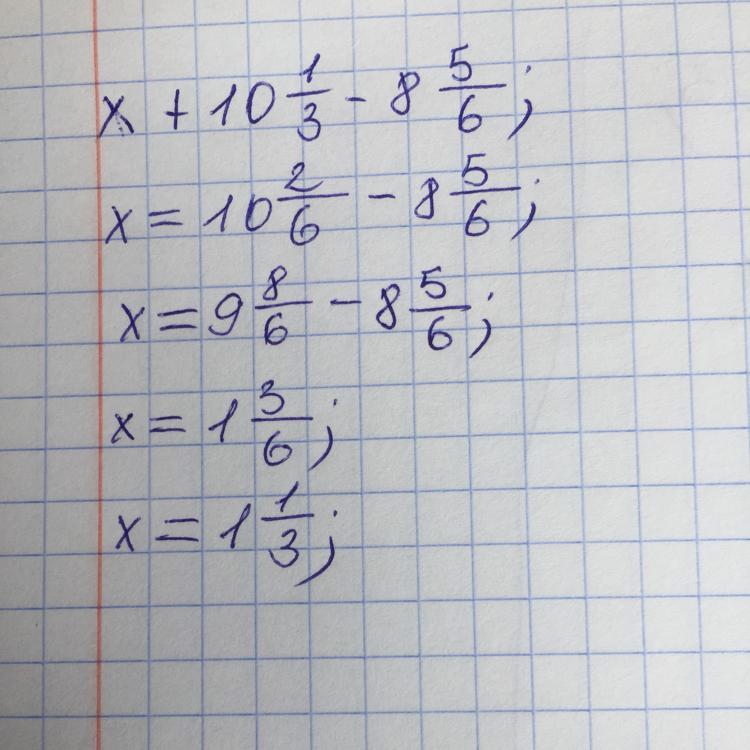 x + 10 1/3 - 8 5/6;
x = 10 2/6 - 8 5/6;
x = 9 8/6 - 8 5/6;
x = 1 3/6;
x = 1 1/3;